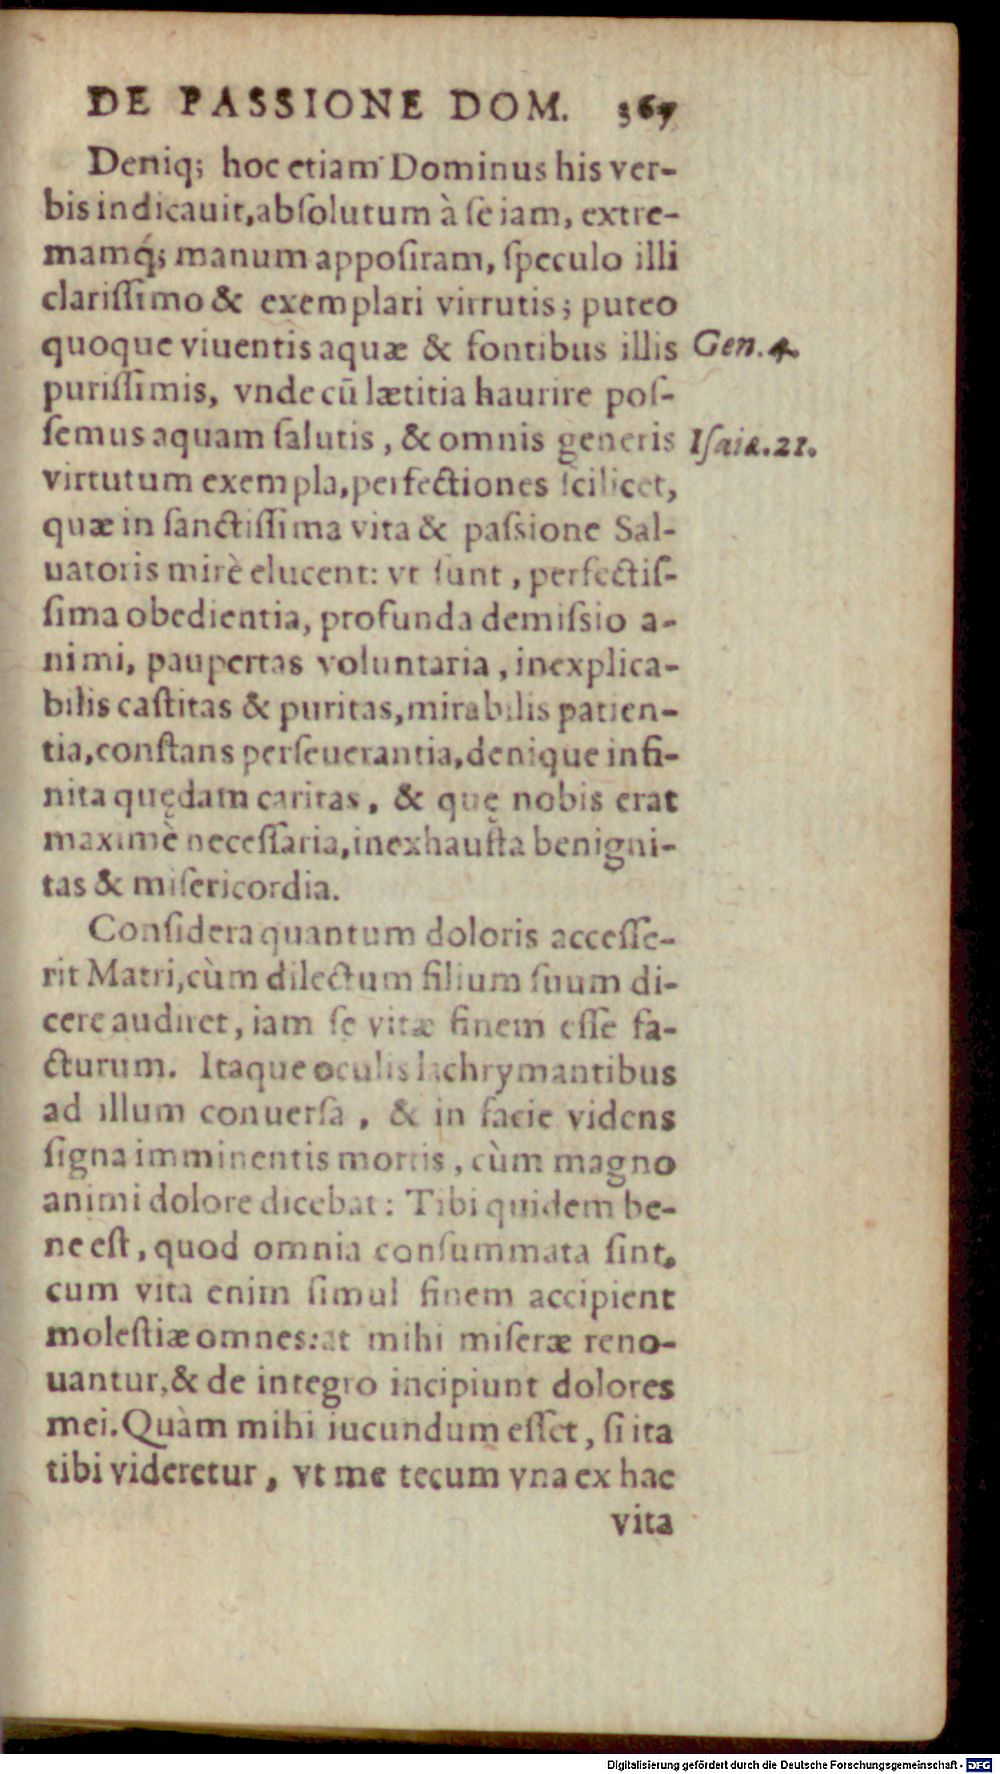 DE PASSIONE DOM. 367
Deniq; hoc etiam Dominus his ver-
bis indicauit, absolutum à se iam, extre-
mamq́; manum appositam, speculo illi
clarissimo & exemplari virtutis; puteo
quoque viuentis aquæ & fontibus illis
Gen. 4.
purissimis, vnde cū lætitia haurire pos-
semus aquam salutis, & omnis generis
Isaiæ. 21.
virtutum exempla, perfectiones scilicet,
quæ in sanctissima vita & passione Sal-
uatoris mirè elucent: vt sunt, perfectis-
sima obedientia, profunda demissio a-
nimi, paupertas voluntaria, inexplica-
bilis castitas & puritas, mirabilis patien-
tia, constans perseuerantia, denique infi-
nita quędam caritas, & quę nobis erat
maximè necessaria, inexhausta benigni-
tas & misericordia.
Considera quantum doloris accesse-
rit Matri, cùm dilectum filium suum di-
cere audiret, iam se vitæ finem esse fa-
cturum. Itaque oculis lachrymantibus
ad illum conuersa, & in facie videns
signa imminentis mortis, cùm magno
animi dolore dicebat: Tibi quidem be-
ne est, quod omnia consummata sint,
cum vita enim simul finem accipient
molestiæ omnes: at mihi miseræ reno-
uantur, & de integro incipiunt dolores
mei. Quàm mihi iucundum esset, si ita
tibi videretur, vt me tecum vna ex hac
vita
Digitalisierung gefördert durch die Deutsche Forschungsgemeinschaft - DFG